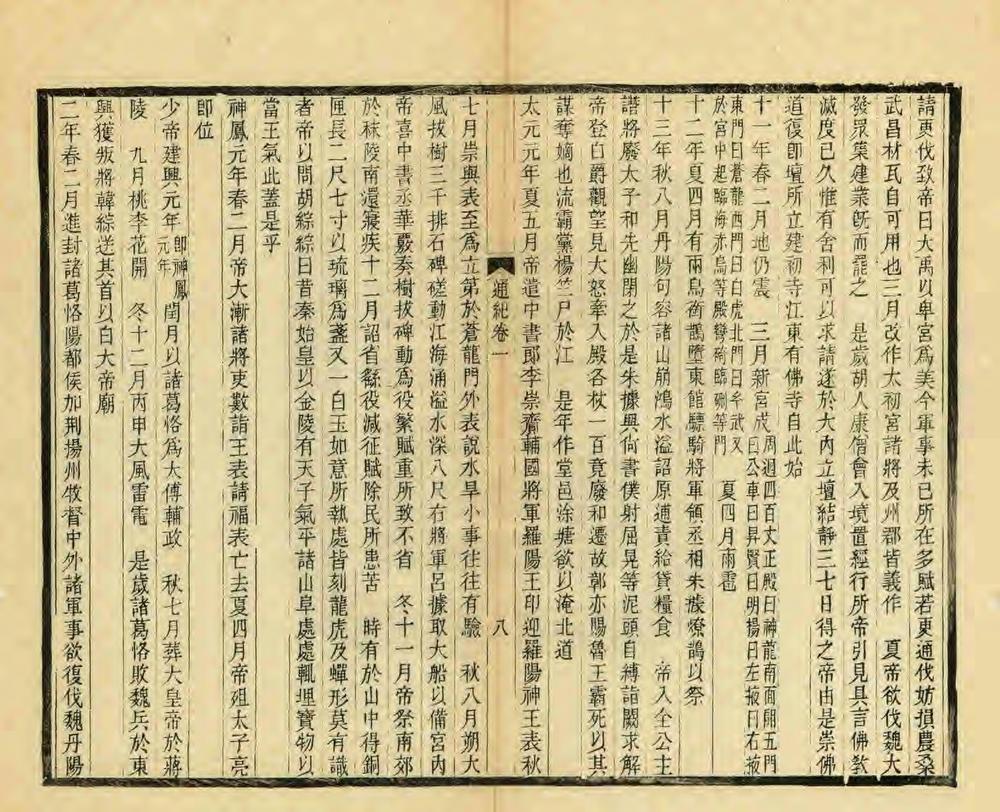 請更伐致帝曰大禹以卑宮為美今軍事未已所在多賦若更通伐妨損農桑
武昌材瓦自可用也三月改作太初宮諸將及州郡皆義作　夏帝欲伐魏大
發眾集建業旣而罷之　是歲胡人康僧會入境置經行所帝引見具言佛教
滅度已久惟有舍利可以求請遂於大內立壇結靜三七日得之帝由是崇佛
道復卽壇所立建初寺江東有佛寺自此始
十一年春二月地仍震　三月新宮成周迴四百丈正殿曰神龍南面開五門
曰公車曰昇賢曰明揚曰左掖曰右掖
東門曰蒼龍西門曰白虎北門曰玄武又
於宮中起臨海赤烏等殿彎碕臨硎等門　夏四月雨雹
十二年夏四月有兩烏銜鵲墮東館驃騎將軍領丞相朱據燎鵲以祭
十三年秋八月丹陽句容諸山崩鴻水溢詔原逋責給貸糧食　帝入全公主
譖將廢太子和先幽閉之於是朱據與尙書僕射屈晃等泥頭自縛詣闕求解
帝登白爵觀望見大怒牽入殿各杖一百竟廢和遷故鄣亦陽魯王霸死以其
謀奪嫡也流霸黨楊竺尸於江　是年作堂邑涂塘欲以淹北道
太元元年夏五月帝遣中書郞李崇齎輔國將軍羅陽王印迎羅陽神王表秋
通紀卷一
八
七月崇與表至為立第於蒼龍門外表說水旱小事往往有驗　秋八月朔大
風拔樹三千排石碑磋動江海涌溢水深八尺右將軍呂據取大船以備宮內
帝喜中書丞華覈奏樹拔碑動為役繁賦重所致不省　冬十一月帝祭南郊
於秣陵南還寢疾十二月詔省繇役減征賦除民所患苦　時有於山中得銅
匣長二尺七寸以琉璃為蓋又一白玉如意所執處皆刻龍虎及蟬形莫有識
者帝以問胡綜綜曰昔秦始皇以金陵有天子氣平諸山阜處處輒埋寶物以
當王氣此蓋是乎
神鳳元年春二月帝大漸諸將吏數詣王表請福表亡去夏四月帝殂太子亮
卽位
少帝建興元年卽神鳳
元年　閏月以諸葛恪為大傅輔政　秋七月葬大皇帝於蔣
陵　九月桃李花開　冬十二月丙申大風雷電　是歲諸葛恪敗魏兵於東
興獲叛將韓綜送其首以白大帝廟
二年春二月進封諸葛恪陽都侯加荆揚州牧督中外諸軍事欲復伐魏丹陽